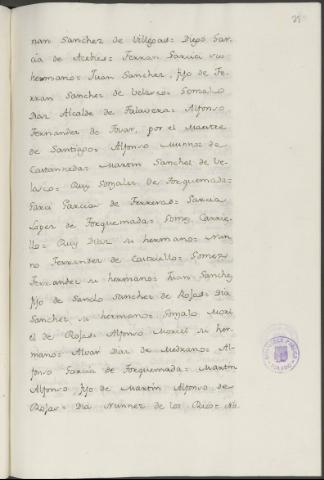 nan Sanchez de Villegas= Diego Gar-
cia de Acebes= Ferran Garcia su
hermano= Juan Sanchez, fijo de Fe-
rran Sanchez de Velasco= Gonzalo
Diaz Alcalde de Talavera= Alfonso
Fernandez de Tovar, por el Maestre
de Santiago= Alfonso Munnoz de
Castanneda= Martin Sanchez de Ve-
lasco= Ruy Gonzalez de Torquemada=
Garci Garcia de Ferreras= Garcia
Lopez de Torquemada= Gomez Carrie-
llo= Ruy Diaz su hermano= Nun-
no Ferrandez de Castriello= Gomez
Ferrandez su hermano= Juan Sanchez
fijo de Sancho Sanchez de Rojas= Dia
Sanchez su hermano= Gonzalo Moxi
el de Rojas= Alfonso Moxiel su her-
mano= Alvar Diaz de Medrano= Al-
fonso Garcia de Torquemada= Martin
Alfonso fijo de Martin Alfonso de
Rojas= Dia Nunnez de los Rios=